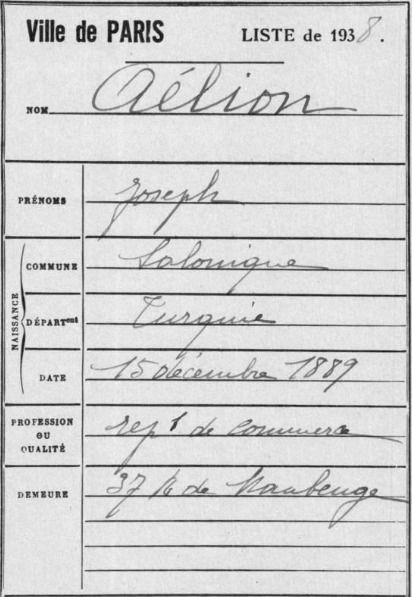 Ville de PARIS
LISTE de 1938.
NOM Aélion
PRÉNOMS Joseph
NAISSANCE
COMMUNE Salonique
DÉPARTent Turquie
DATE 15 décembre 1889
PROFESSION OU QUALITÉ rept de commerce
DEMEURE 37 R. de Maubeuge